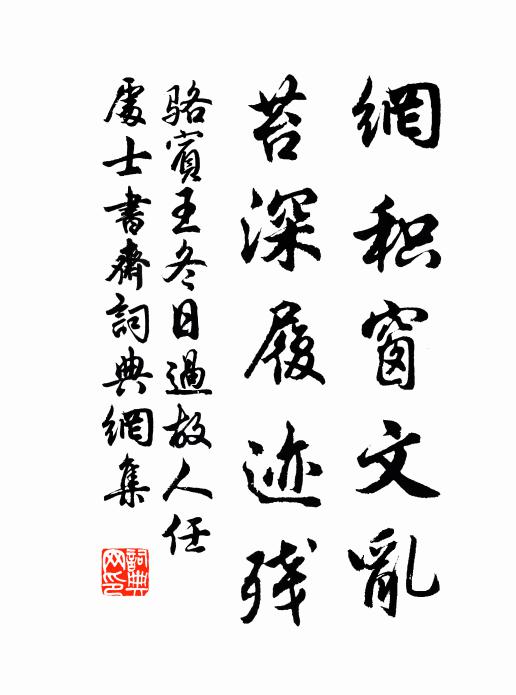 網积窗文亂
苔深履迹残
骆賓王冬日過故人任
處士書齋詞典網集
詞典網印